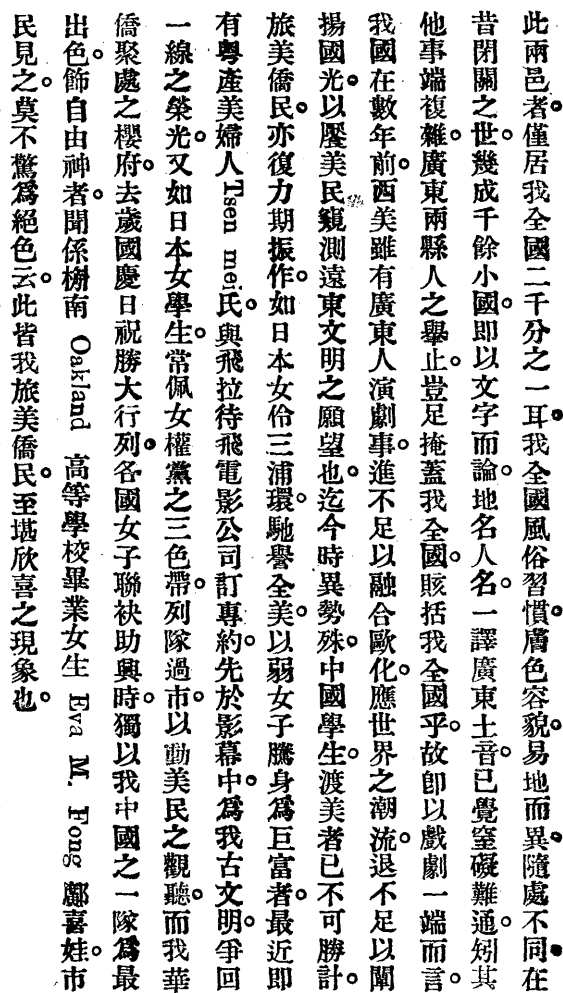 此兩邑者。僅居我全國二千分之一耳。我全國風俗習慣。膚色容貌。易地而異。隨處不同。在
昔閉關之世。幾成千餘小國。即以文字而論。地名人名。一譯廣東土音。已覺窒礙難通。矧其
他事端複雜。廣東兩縣人之舉止。豈足掩蓋我全國。賅括我全國乎。故即以戲劇一端而言。
我國在數年前。西美雖有廣東人演劇事。進不足以融合歐化。應世界之潮流。退不足以闡
揚國光。以饜美民窺測遠東文明之願望也。迄今時異勢殊。中國學生。渡美者已不可勝計。
旅美僑民。亦復力期振作。如日本女伶三浦環。馳譽全美。以弱女子騰身爲巨富者。最近即
有粤產美婦人 Tsen mei 氏。與飛拉待飛電影公司訂專約。先於影幕中。爲我古文明。爭回
一線之榮光。又如日本女學生。常佩女權黨之三色帶。列隊過市。以動美民之觀聽。而我華
僑聚處之櫻府。去歲國慶日祝勝大行列。各國女子聯袂助興時。獨以我中國之一隊。爲最
出色。飾自由神者。聞係榭南 Oakland 高等學校畢業女生 Eva M. Fong 鄺喜娃。市
民見之。莫不驚爲絕色云。此皆我旅美僑民。至堪欣喜之現象也。